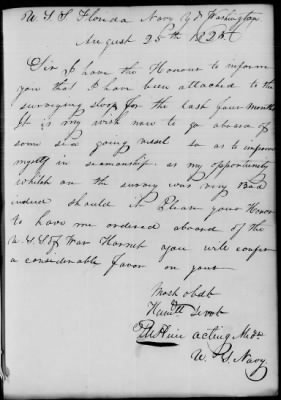 U. S. S. Florida Navy Yd Washington
August 25th
Sir I have the Honour to inform
you that I have been attached to the
surveying sloop for the last four months
It is my wish now to go aboard of
some sea going vessel so as to improve
myself in seamanship. as my opportunity
whilst on the survey was very Bad
indeed should it Please your Honor
to have me ordered aboard of the
U. S. S of War Hornet you will confer
a considerable favor on your
Most obdt
Humble Servt
acting Midn
U. S. Navy